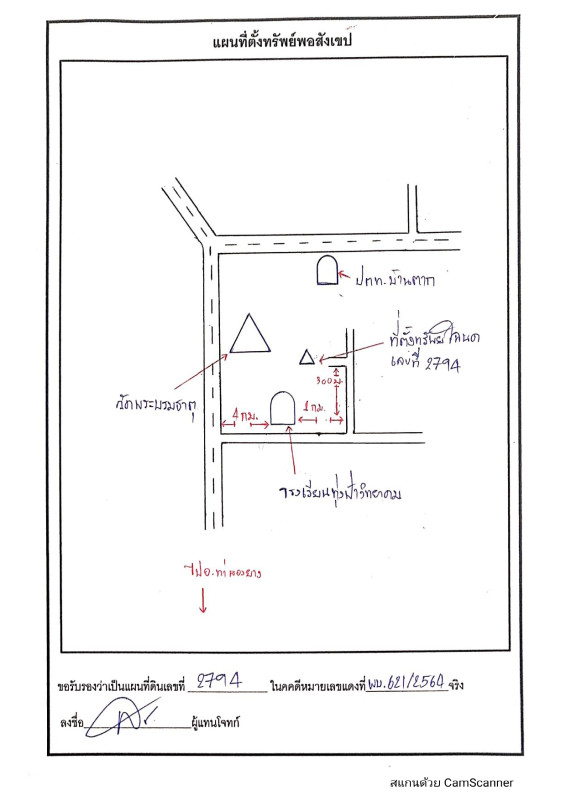 แผนที่ตั้งทรัพย์พอสังเขป
ปตท. บ้านตาก
ที่ตั้งทรัพย์โฉนด
เลขที่ 2794
300 ม.
วัดพระบรมธาตุ
4 กม.
1 กม.
โรงเรียนทุ่งฟ้าวิทยาคม
ไป อ. ท่าสองยาง
ขอรับรองว่าเป็นแผนที่ดินเลขที่ 2794 ในคดีหมายเลขแดงที่ ผบ.621/2564 จริง
ลงชื่อ ผู้แทนโจทก์
สแกนด้วย CamScanner